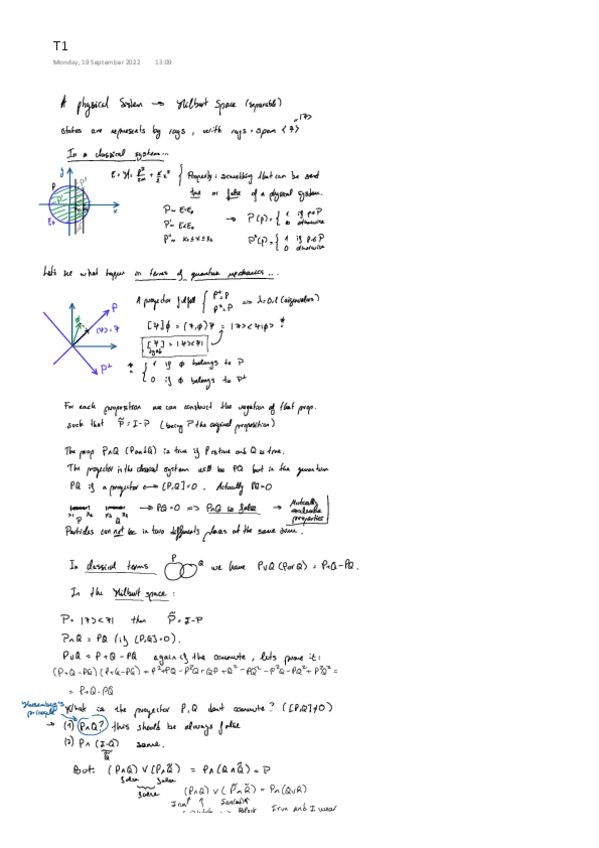 T1
Monday, 19 September 2022 13:09
A physical System → Hilbert Space (separable)
states are represents by rays, with rays = span
In a classical system...
Property: something that can be said
true or false of a physical system.
P ~ E>E₀
P' ~ E<E₀
P'' ~
P(p) = { 1 if p∈P
0 otherwise
1 if p∈P
0 otherwise
Let's see what happen in terms of quantum mechanics...
A projector fulfill { P⁺=P
P²=P ⟹ λ=0,1 (eigenvalues)
[Ψ]ϕ = (Ψ,ϕ)Ψ = |Ψ><Ψ|ϕ>
[Ψ] = |Ψ><Ψ|
1 if ϕ belongs to P
0 if ϕ belongs to P⊥
For each proposition we can construct the negation of that prop.
such that P̃ = I-P (being P the original proposition)
The prop P∧Q (P and Q) is true if P is true and Q is true.
The projector in the classical system will be PQ but in the quantum
PQ if a projector ⟷ [P,Q]=0. Actually PQ=0
→ PQ=0 ⟹ P∧Q is false → Mutually
exclusive
properties
x₁ x₂ x₃ x₄
P Q
Particles can not be in two differents places at the same time.
In classical terms P Q we have P∪Q (P or Q) = P+Q-PQ.
In the Hilbert space:
P = |Ψ><Ψ| then P̃ = I-P
P∧Q = PQ (if [P,Q]=0).
P∪Q = P+Q-PQ again if the commute, lets prove it:
(P+Q-PQ)(P+Q-PQ) = P²+PQ-P²Q+QP+Q²-PQ²-P²Q-PQ²+P²Q² =
= P+Q-PQ
Heisenberg's
principle
What is the projector P,Q dont commute? ([P,Q]≠0)
→ (1) P∧Q? this should be always false
(2) P∧(I-Q) same.
Q̃
But: (P∧Q) ∨ (P∧Q̃) = P∧(Q∧Q̃) = P
false false
false
(P∧Q) ∨ (P̃∧Q) = P∧(Q∪R)
I run and I wear